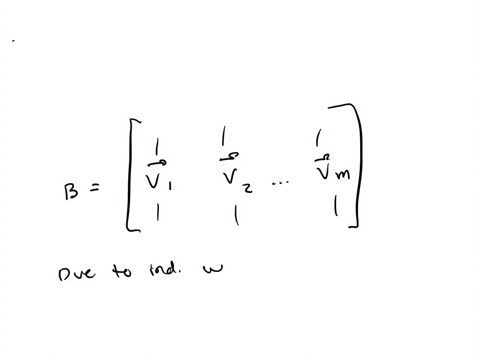 B = [ | | |
V⃗₁ V⃗₂ ... V⃗ₘ
| | | ]
Due to ind. w